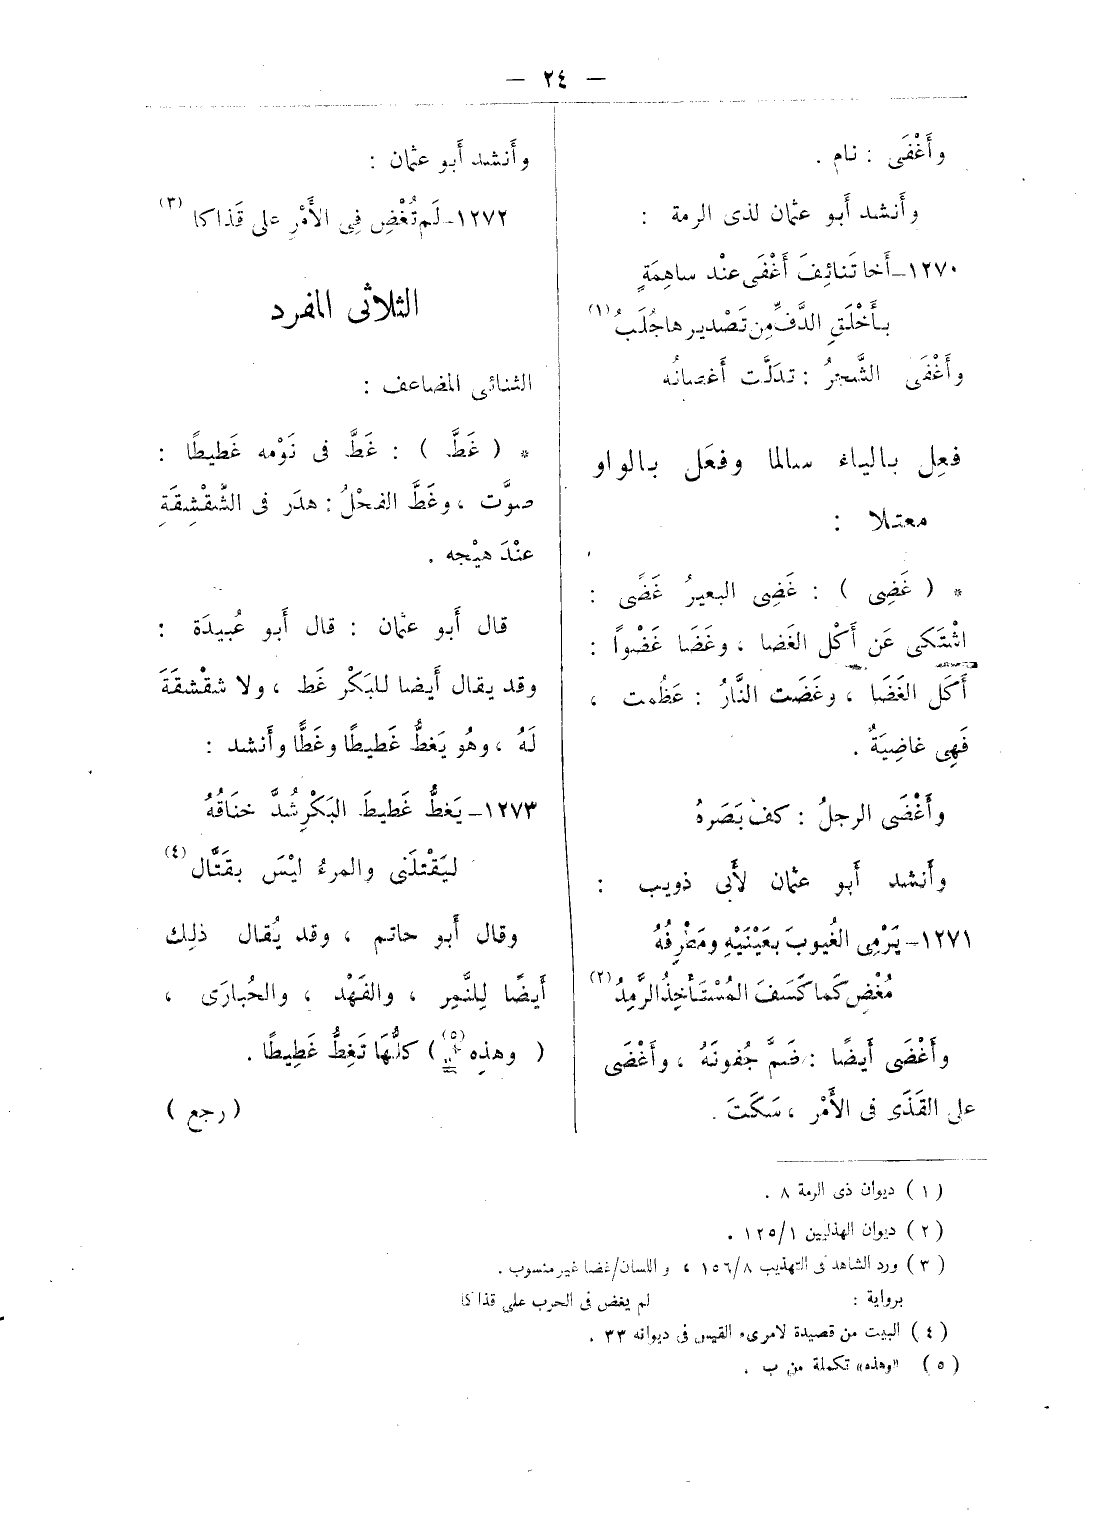 — ٢٤ —
وأَغْفَى : نام .
وأَنشد أَبو عثمان لذى الرمة :
١٢٧٠ـ أَخا تَنائِفَ أَغْفَى عنْد ساهِمَةٍ
بأَخْلَقِ الدَّفِّ مِن تَصْديرها جُلَبُ (١)
وأَغْفَى الشَّجرُ : تدلَّت أَغصانُه
فعِل بالياء سالما وفعَل بالواو
معتلا :
* ( غَضِى ) : غَضِى البعيرُ غَضًى :
اشْتكى عَن أَكْل الغَضا ، وغَضَا غَضْواً :
أَكَل الغَضَا ، وغَضَت النَّارُ : عَظُمت ،
فَهِى غاضِيَةٌ .
وأَغْضَى الرجلُ : كفّ بَصَرهُ
وأَنشد أَبو عثمان لأَبى ذويب :
١٢٧١ـ يَرْمِى الغُيوبَ بِعَيْنَيْهِ ومَطْرِفُهُ
مُغْضٍ كَما كَسَفَ المُسْتَأْخِذُ الرَّمِدُ (٢)
وأَغْضَى أَيضًا : ضمَّ جُفونَهُ ، وأَغْضَى
على القَذَى فى الأَمْر ، سَكَتَ .
وأَنشد أَبو عثمان :
١٢٧٢ـ لَم تُغْضِ فِى الأَمْرِ على قَذاكا (٣)
الثلاثى المفرد
الثنائى المضاعف :
* ( غَطَّ ) : غَطَّ فى نَوْمه غَطيطًا :
صوَّت ، وغَطَّ الفحْلُ : هدَر فى الشِّقْشِقَةِ
عنْدَ هيْجه .
قال أَبو عثمان : قال أَبو عُبيدَة :
وقد يقال أَيضا للبَكْر غَط ، ولا شقْشقَةَ
لَهُ ، وهُو يَغطُّ غَطيطًا وغَطًّا وأَنشد :
١٢٧٣ـ يَغطُّ غَطيطَ البَكْرِ شُدَّ خنَاقُهُ
ليَقْتلَنى والمرءُ ليْسَ بقَتَّال (٤)
وقال أَبو حاتم ، وقد يُقال ذلِك
أَيضًا لِلنَّمِر ، والفَهْد ، والحُبارَى ،
( وهذِه (٥) ) كلُّهَا تَغِطُّ غَطِيطًا .
( رجع )
( ١ ) ديوان ذى الرمة ٨ .
( ٢ ) ديوان الهذليين ١٢٥/١ .
( ٣ ) ورد الشاهد فى التهذيب ١٥٦/٨ ، واللسان/غضا غير منسوب .
برواية : لم يغض فى الحرب على قذاكا
( ٤ ) البيت من قصيدة لامرىء القيس فى ديوانه ٣٣ .
( ٥ ) «وهذه» تكملة من ب .